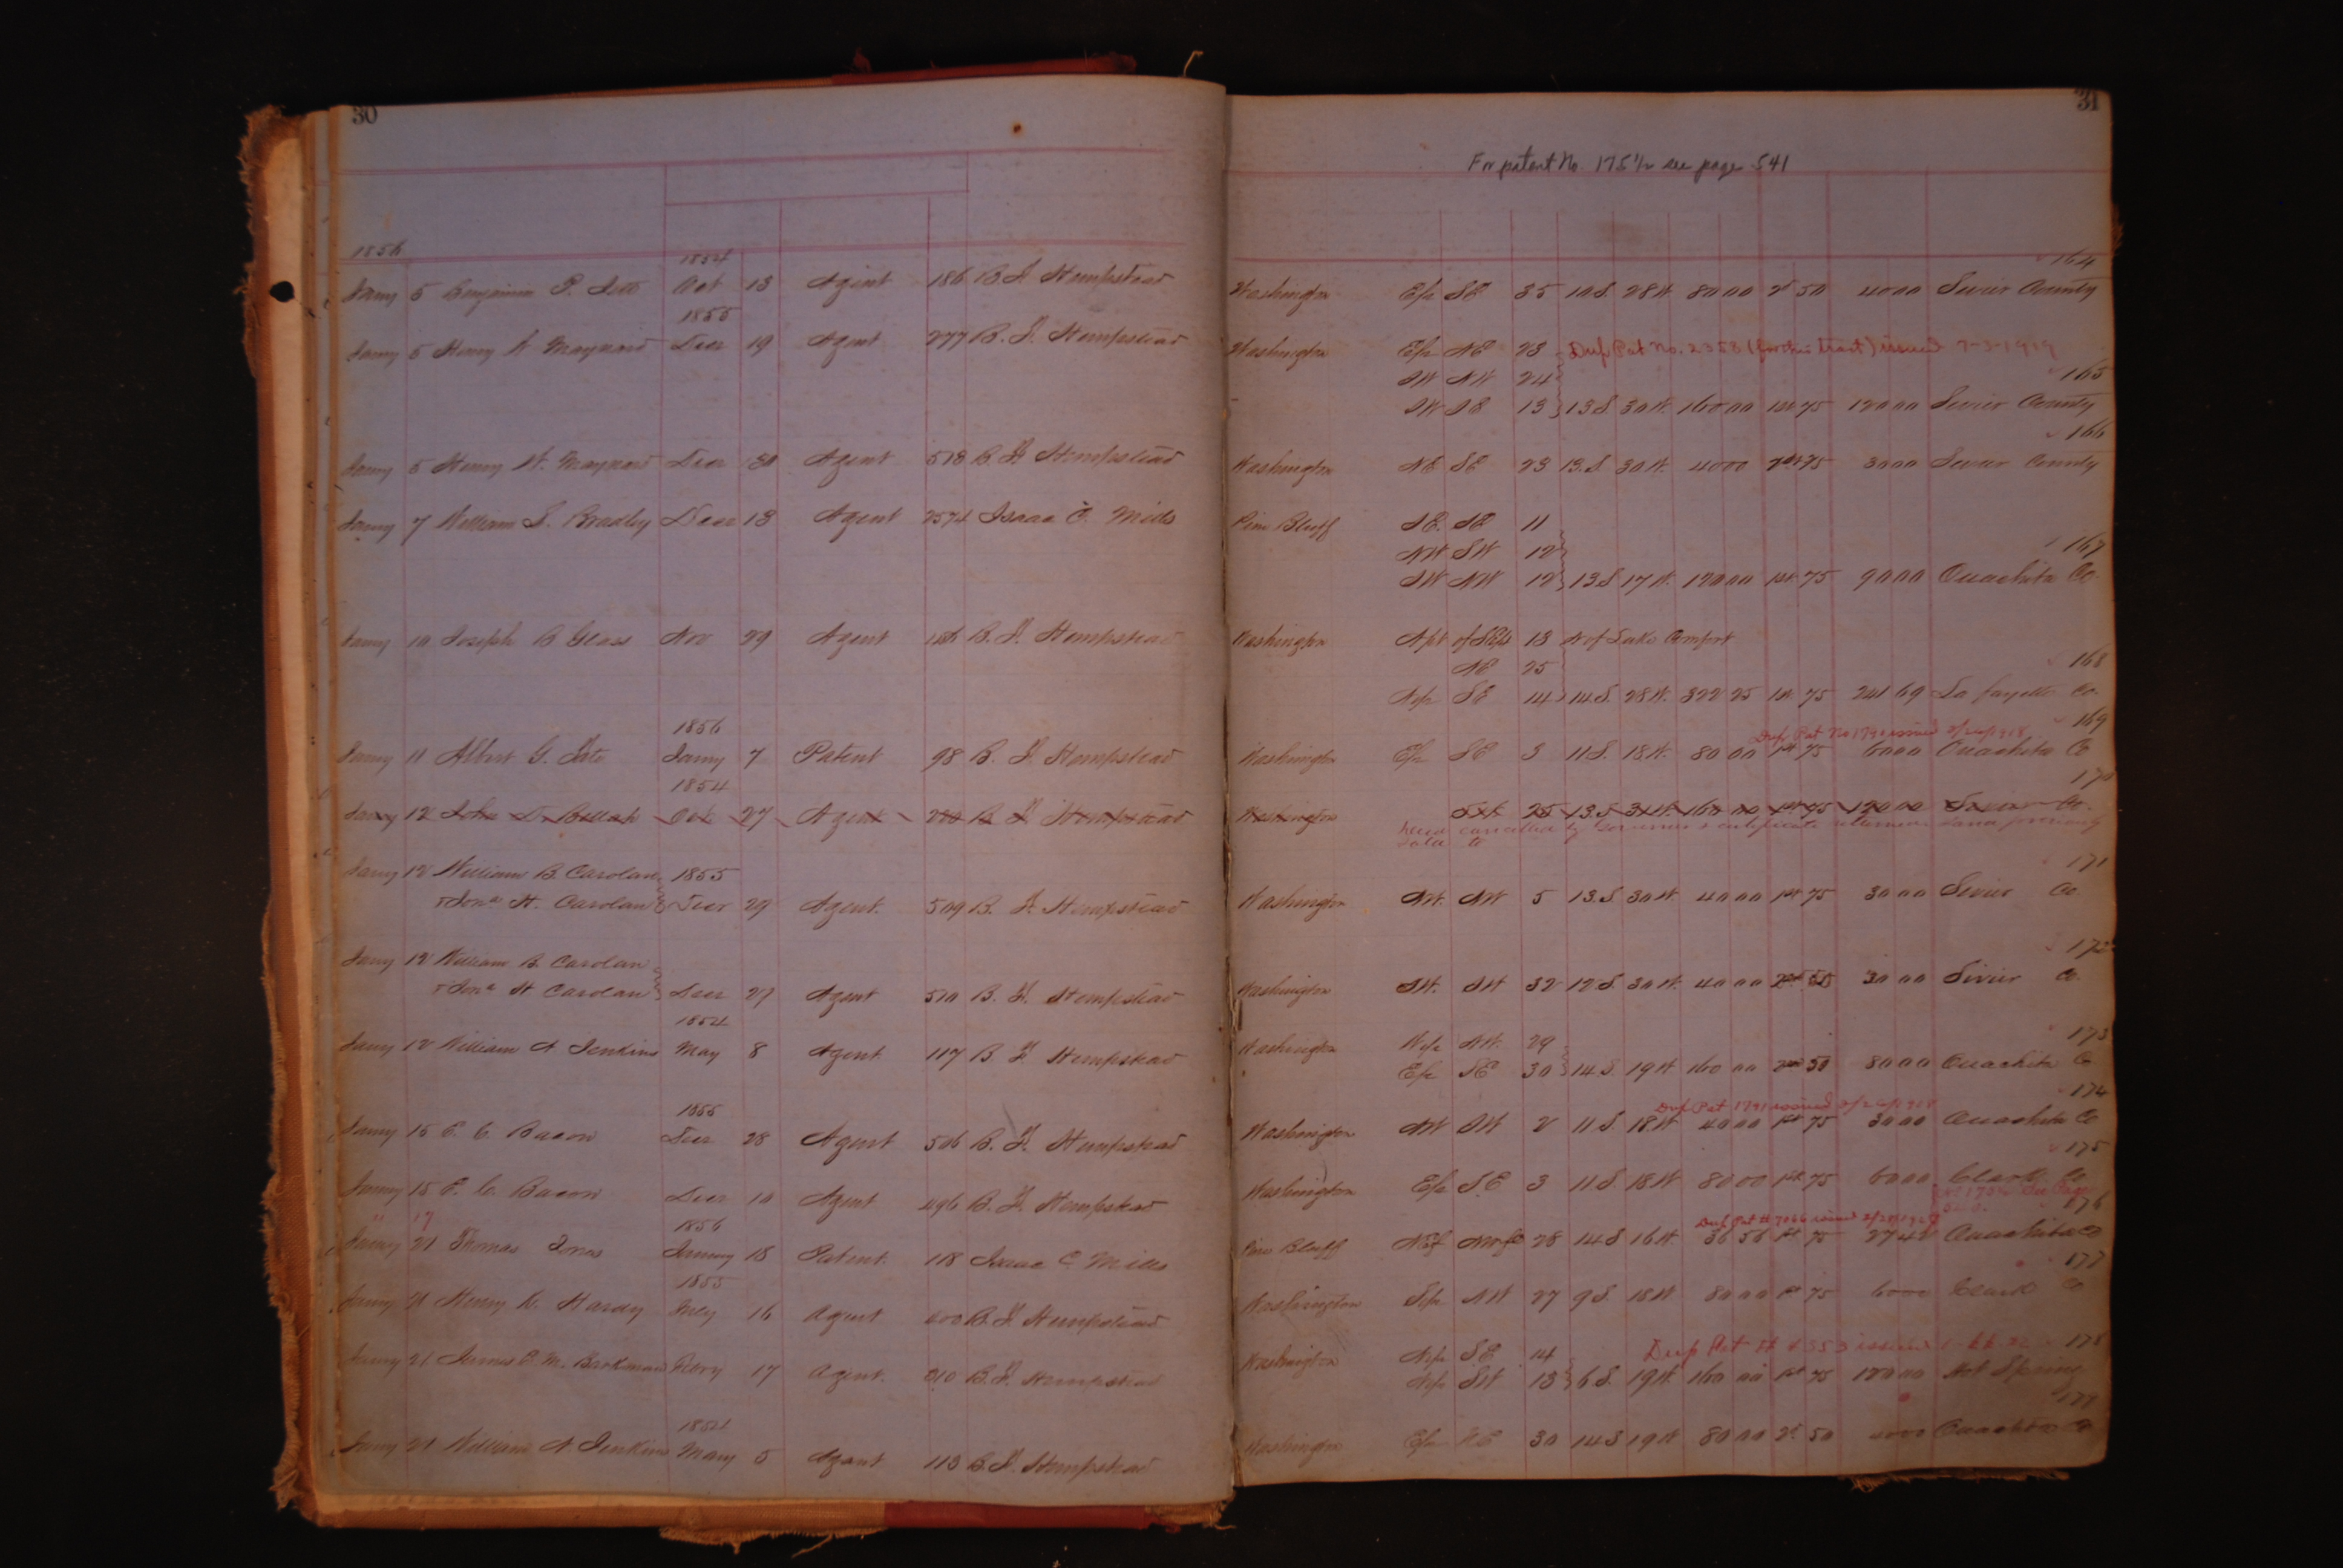 30
1856
1854
Jany 5 Benjamin P. Jett Oct 13 Agent 186 B. F. Hempstead
1855
Jany 5 Henry W Maynard Decr 19 Agent 277 B. F. Hempstead
Jany 5 Henry W. Maynard Decr 30 Agent 518 B. F. Hempstead
Jany 7 William S. Bradley Decr 13 Agent 2574 Isaac C. Mills
Jany 10 Joseph B Glass Nov 29 Agent B. F. Hempstead
1856
Jany 11 Albert G. Jany 7 Patent 98 B. F. Hempstead
1854
Jany 12 John Oct 27 Agent B. F. Hempstead
Jany 12 William B. Carolan 1855
H. Carolan Decr 29 Agent. 509 B. F. Hempstead
Jany 12 William B. Carolan
H Carolan Decr 29 Agent 510 B. F. Hempstead
1854
Jany 12 William A Jenkins May 8 Agent 117 B F Hempstead
1855
Jany 15 E. C. Bacon Decr 28 Agent 506 B. F. Hempstead
Jany 15 E. C. Bacon Decr 10 Agent 496 B. F. Hempstead
" 17 1856
Jany 21 Thomas Jones Jany 18 Patent. 118 Isaac C. Mills
1855
Jany 21 Henry K. Hardy 16 Agent B. F. Hempstead
Jany 21 James E. M. 17 Agent. 310 B. F. Hempstead
1854
Jany 21 William A Jenkins May 5 Agent 113 B. F. Hempstead
31
For patent No. 175 1/2 see page 541
164
Washington E/2 SE 35 10 S. 28 W. 80 00 2d 50 40 00 Sevier County
Washington E/2 NE 23 Dup Pat No. 2358 (for this tract) issued 7-3-1919
SW NW 24 165
SW SE 13 13 S. 30 W. 160 00 1st 75 120 00 Sevier County
166
Washington NE SE 23 13. S 30 W. 40 00 75 30 00 Sevier County
Pine Bluff SE. SE 11
NW SW 12 167
SW NW 12 13 S 17 W. 120 00 1st 75 90 00 Ouachita Co.
Washington N pt of 13 of Lake Comfort
NE 25 168
N/2 SE 14 14 S. 28 W. 322 25 1st 75 241 69 La fayette Co.
Dup Pat No 1790 issued 169
Washington E/2 SE 3 11 S. 18 W. 80 00 1st 75 60 00 Ouachita Co
170
Washington 25 13. S 31 W. 160 00 1st 75 120 00 Sevier Co.
cancelled by Governor's certificate returned land previously
sold to
171
Washington NW. NW 5 13. S 30 W. 40 00 1st 75 30 00 Sevier Co
172
Washington SW. SW 32 12 S. 30 W. 40 00 30 00 Sevier Co.
173
Washington W/2 NW. 29
E/2 SE 30 14 S. 19 W 160 00 50 80 00 Ouachita Co
Dup Pat 1791 issued 174
Washington NW SW 2 11 S. 18 W 40 00 1st 75 30 00 Ouachita Co
175
Washington E/2 SE 3 11 S. 18 W 80 00 1st 75 60 00 Clark Co
See Page
Dup Pat # issued 176
Pine Bluff 28 14 S 16 W. 36 56 1st 75 27 42 Ouachita Co
177
Washington S/2 NW 27 9 S. 18 W 80 00 1st 75 60 00 Clark Co
Washington N/2 SE 14 Dup Pat # issued 178
N/2 SW 13 6 S. 19 W. 160 00 1st 75 120 00 Hot Spring
179
Washington E/2 NE 30 14 S 19 W 80 00 2d 50 40 00 Ouachita Co